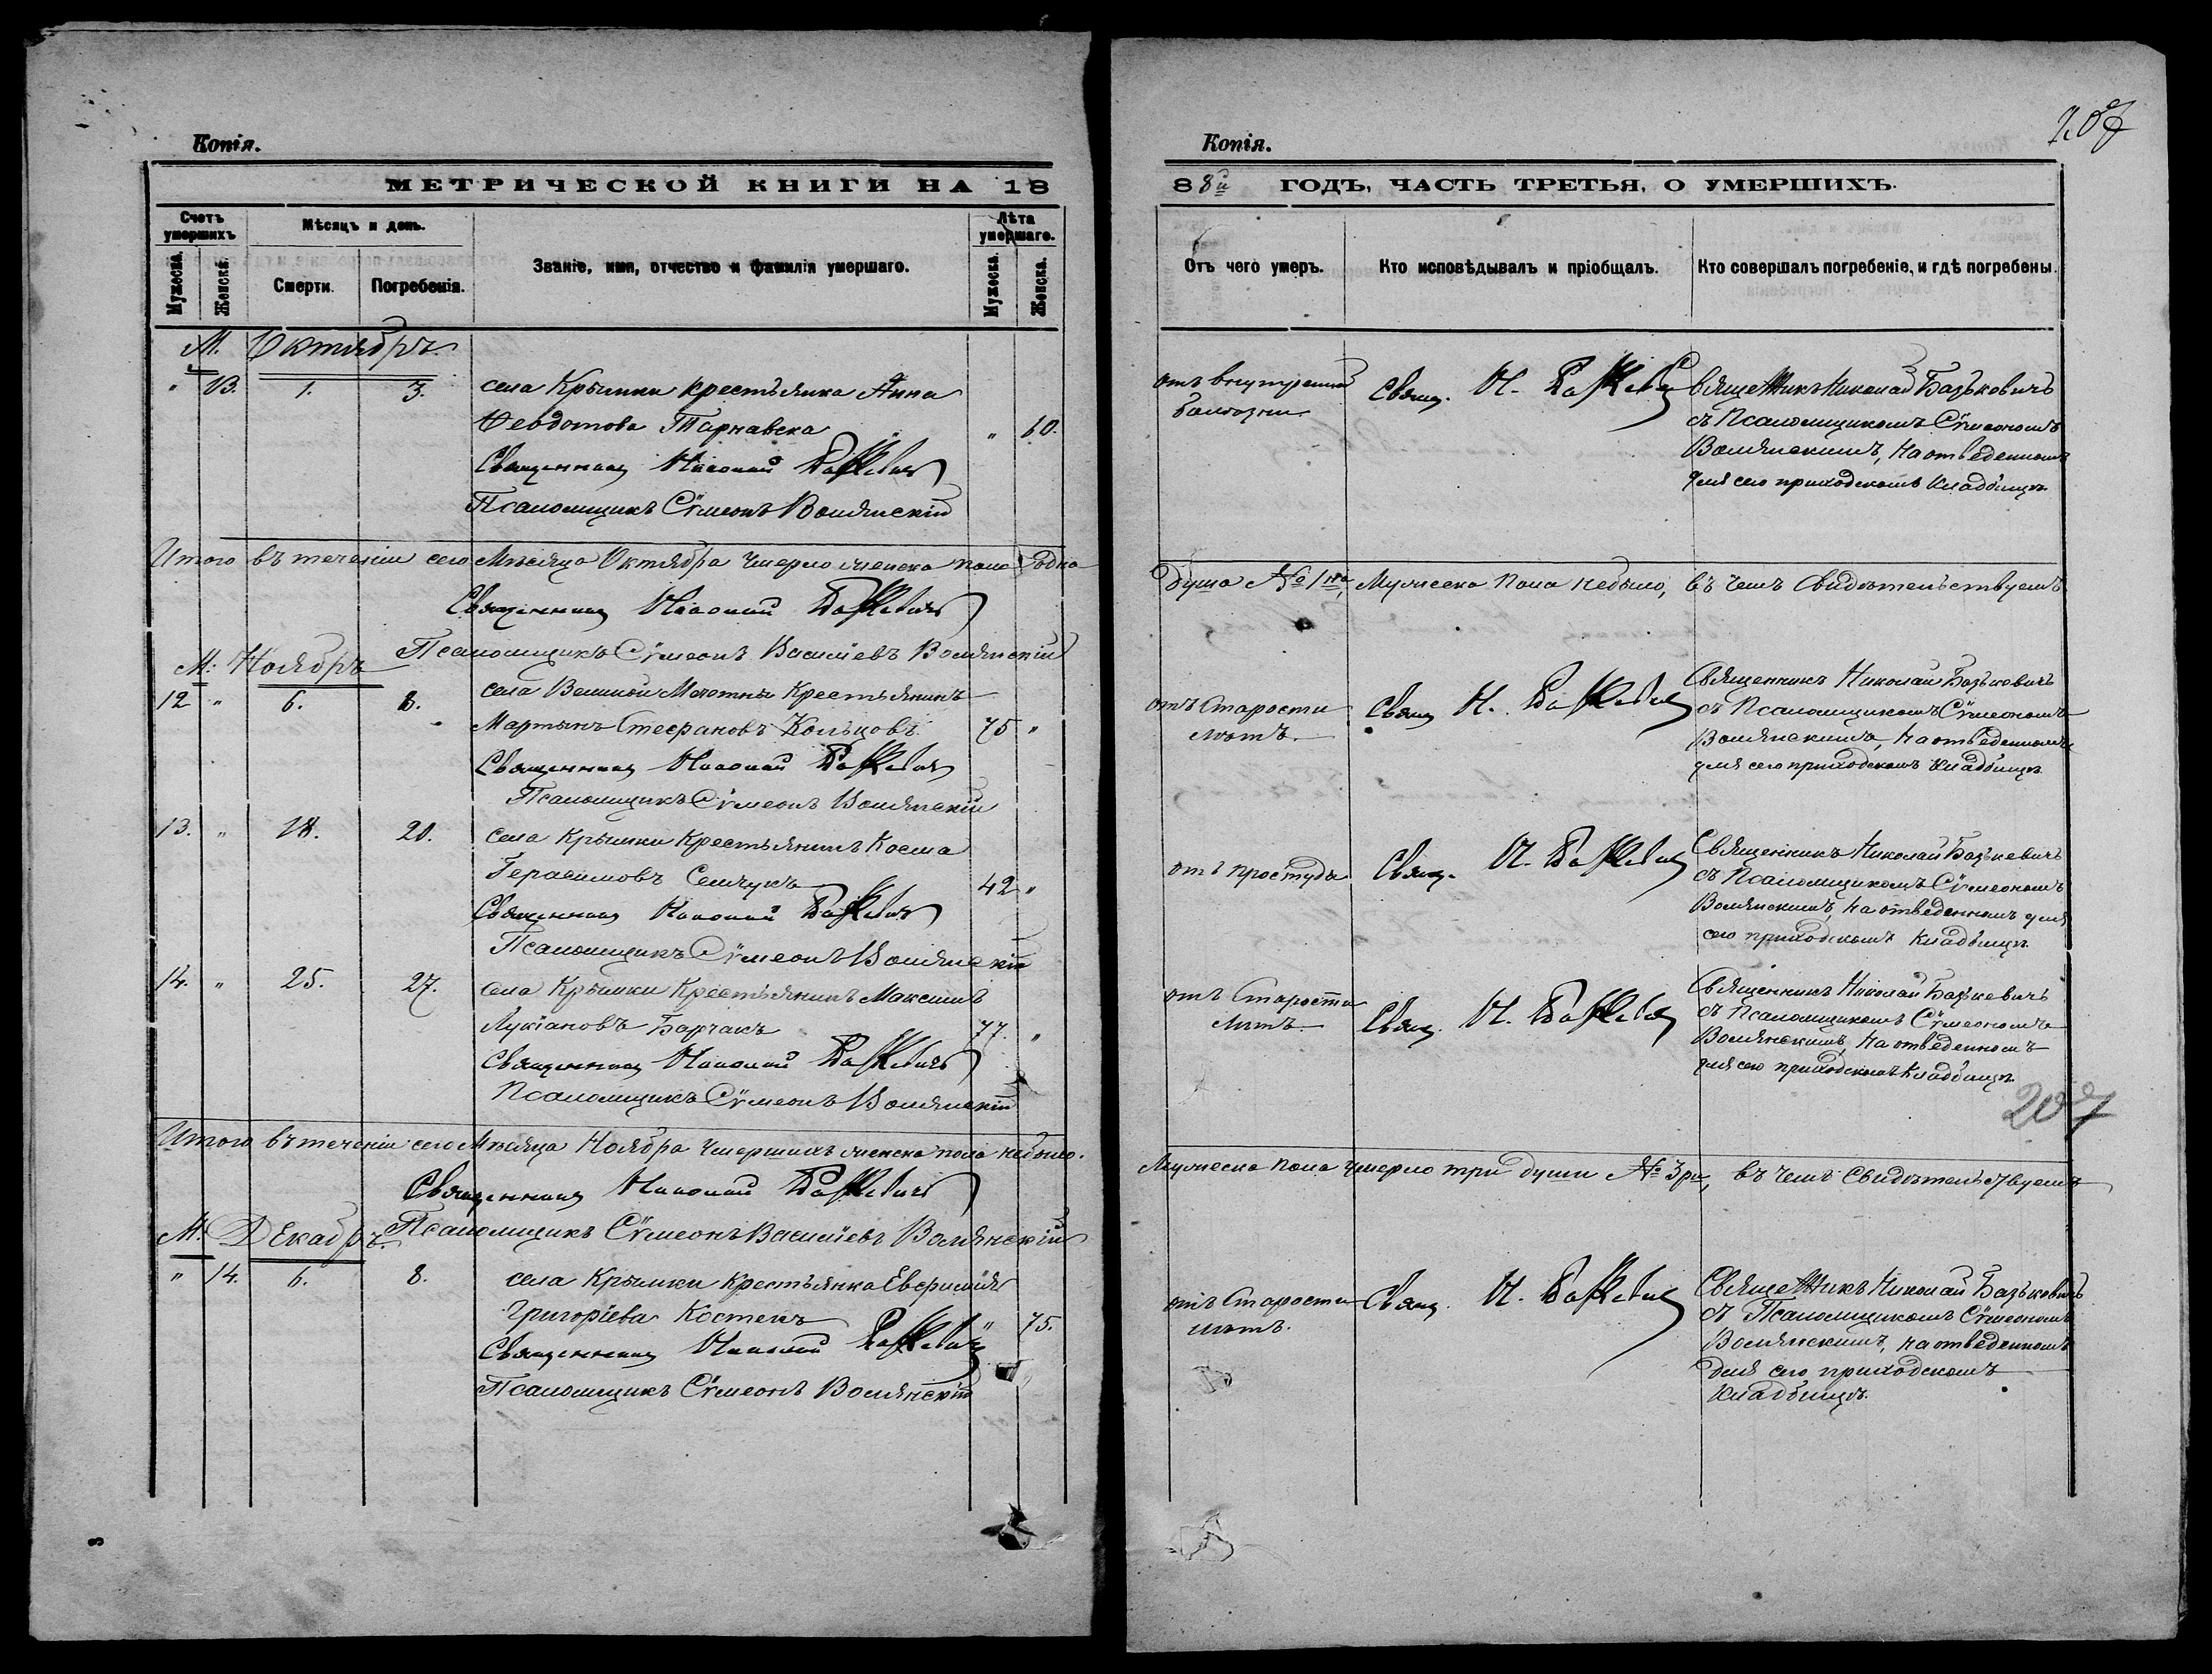 Копія.
МЕТРИЧЕСКОЙ КНИГИ НА 18
Счетъ умершихъ.
Мужеска.
Женска.
Мѣсяцъ и день.
Смерти.
Погребенія.
Званіе, имя, отчество и фамилія умершаго.
Лѣта умершаго.
Мужеска.
Женска.
М. Октябрь.
" 13. 1. 3. села Крымки крестьянка Анна
Ѳеодотова Тарнавска " 60.
Священникъ Николай
Псаломщикъ Сѵмеонъ Волянскій
Итого въ теченіи сего Мѣсяца Октября умерло женска пола одна
Священникъ Николай
Псаломщикъ Сѵмеонъ Василіевъ Волянскій
М. Ноябрь
12 " 6. 8. села Великой Крестьянинъ
Мартынъ Стефановъ Кольцовъ. 75 "
Священникъ Николай
Псаломщикъ Сѵмеонъ Волянскій
13. " 18. 20. села Крымки Крестьянинъ Косма
Герасимовъ Семчукъ 42 "
Священникъ Николай
Псаломщикъ Сѵмеонъ Волянскій
14. " 25. 27. села Крымки Крестьянинъ Максимъ
Лукіановъ 77. "
Священникъ Николай
Псаломщикъ Сѵмеонъ Волянскій
Итого въ теченіи сего Мѣсяца Ноября умершихъ женска пола небыло.
Священникъ Николай
Псаломщикъ Сѵмеонъ Василіевъ Волянскій
М. Декабрь.
" 14. 6. 8. села Крымки крестьянка Евфимія
Григоріева Костекъ " 75.
Священникъ Николай
Псаломщикъ Сѵмеонъ Волянскій
Копія.
207
88й ГОДЪ, ЧАСТЬ ТРЕТЬЯ, О УМЕРШИХЪ.
Отъ чего умеръ.
Кто исповѣдывалъ и пріобщалъ.
Кто совершалъ погребеніе, и гдѣ погребены.
отъ внутренней
болезни
Свящ. Н.
Священникъ Николай
съ Псаломщикомъ Сѵмеономъ
Волянскимъ, на отведенномъ
для сего приходскомъ кладбищѣ
Душа № 1на, Мужеска пола небыло, въ чемъ свидѣтельствуемъ
отъ Старости
лѣтъ.
Свящ. Н.
Священникъ Николай
съ Псаломщикомъ Сѵмеономъ
Волянскимъ, на отведенномъ
для сего приходскомъ кладбищѣ
отъ простуды
Свящ. Н.
Священникъ Николай
съ Псаломщикомъ Сѵмеономъ
Волянскимъ, на отведенномъ для
сего приходскомъ кладбищѣ
отъ Старости
лѣтъ
Свящ. Н.
Священникъ Николай
съ Псаломщикомъ Сѵмеономъ
Волянскимъ, на отведенномъ
для сего приходскомъ кладбищѣ
207
Мужеска пола умерло три души № 3ри, въ чемъ свидѣтельствуемъ
отъ Старости
лѣтъ.
Свящ. Н.
Священникъ Николай
съ Псаломщикомъ Сѵмеономъ
Волянскимъ, на отведенномъ
для сего приходскомъ
кладбищѣ.